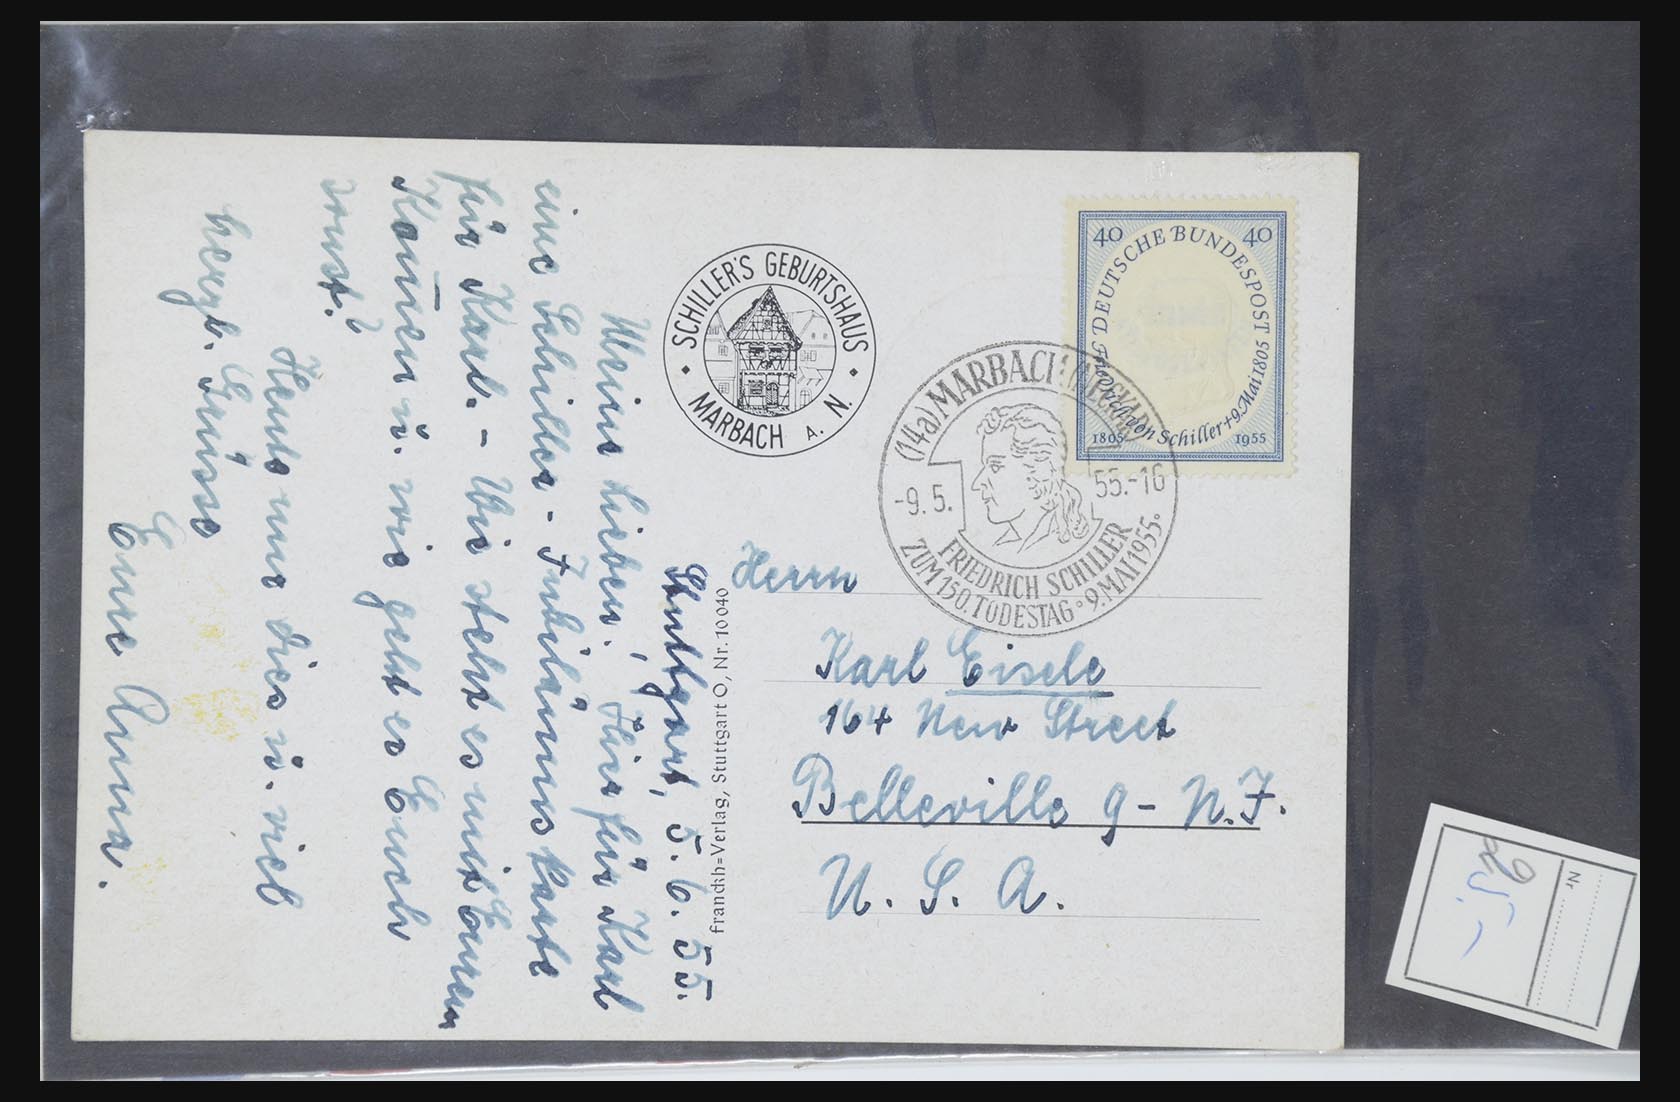 Stuttgart, 5. 6. 55.
Meine Lieben! Hier für Karl
eine Schiller-Jubiläumskarte
für Karl. – Wie steht es mit Eurem
Kommen u. wie geht es Euch
sonst?
Heute nur dies u. viel
herzl. Grüsse
Eure Anna.
SCHILLER'S GEBURTSHAUS
MARBACH A. N.
franckh=Verlag, Stuttgart O, Nr. 10040
40 DEUTSCHE BUNDESPOST 40
Friedrich von Schiller † 9. Mai 1805
1805 1955
(14a) MARBACH (NECKAR)
-9.5. 55.-16
FRIEDRICH SCHILLER
ZUM 150. TODESTAG • 9. MAI 1955 •
Herrn
Karl Eisele
164 New Street
Belleville 9 - N.J.
U. S. A.
Nr